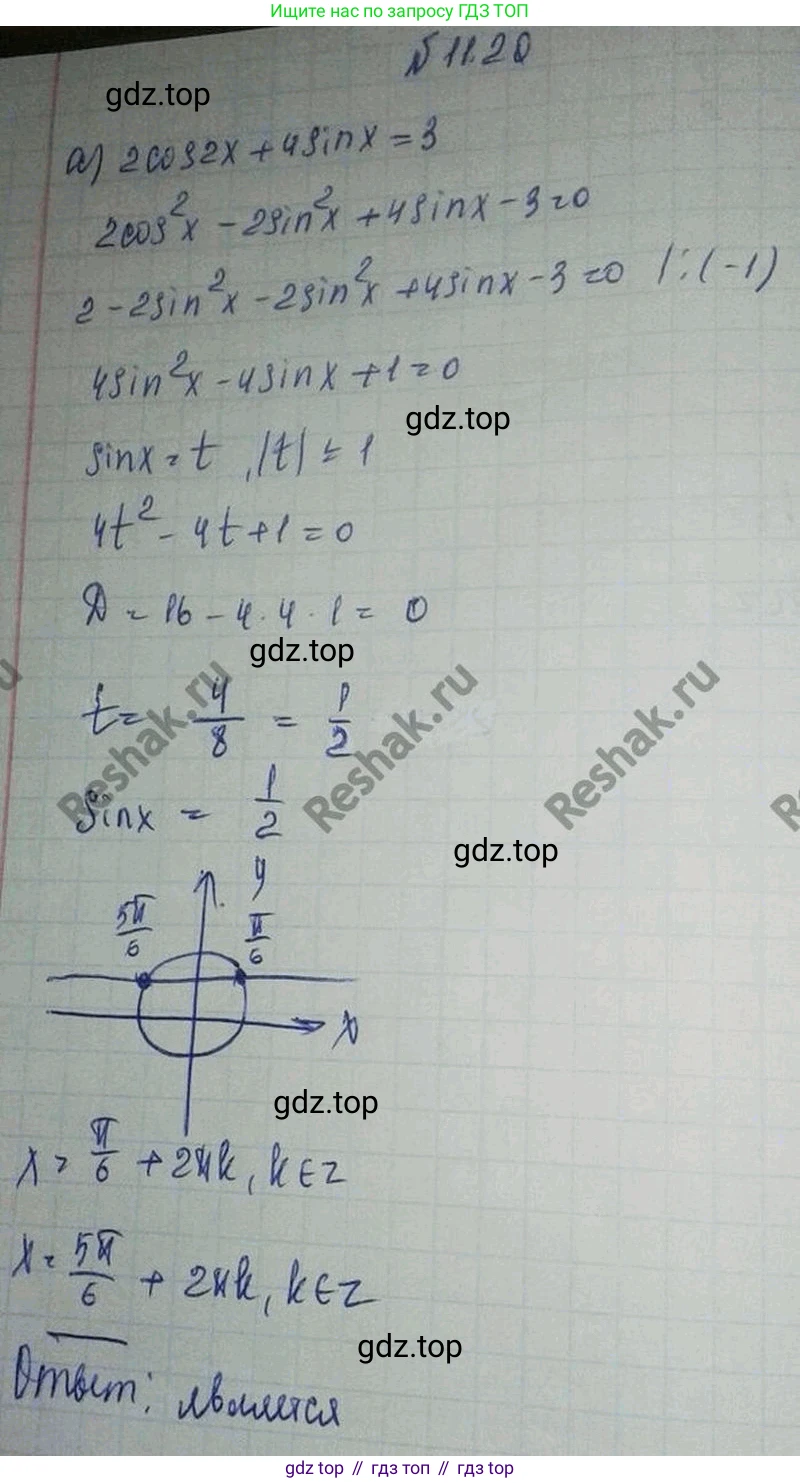 Ищите нас по запросу ГДЗ ТОП
№ 11.20
gdz.top
а) 2cos2x + 4sinx = 3
2cos²x - 2sin²x + 4sinx - 3 = 0
2 - 2sin²x - 2sin²x + 4sinx - 3 = 0 |:(-1)
4sin²x - 4sinx + 1 = 0
gdz.top
sinx = t, |t| ≤ 1
4t² - 4t + 1 = 0
D = 16 - 4·4·1 = 0
gdz.top
t = 4/8 = 1/2
Reshak.ru Reshak.ru Reshak.ru
sinx = 1/2
gdz.top
y
5π/6 π/6
x
gdz.top
x = π/6 + 2πk, k∈z
x = 5π/6 + 2πk, k∈z
gdz.top
Ответ: является
gdz top // гдз топ // gdz top